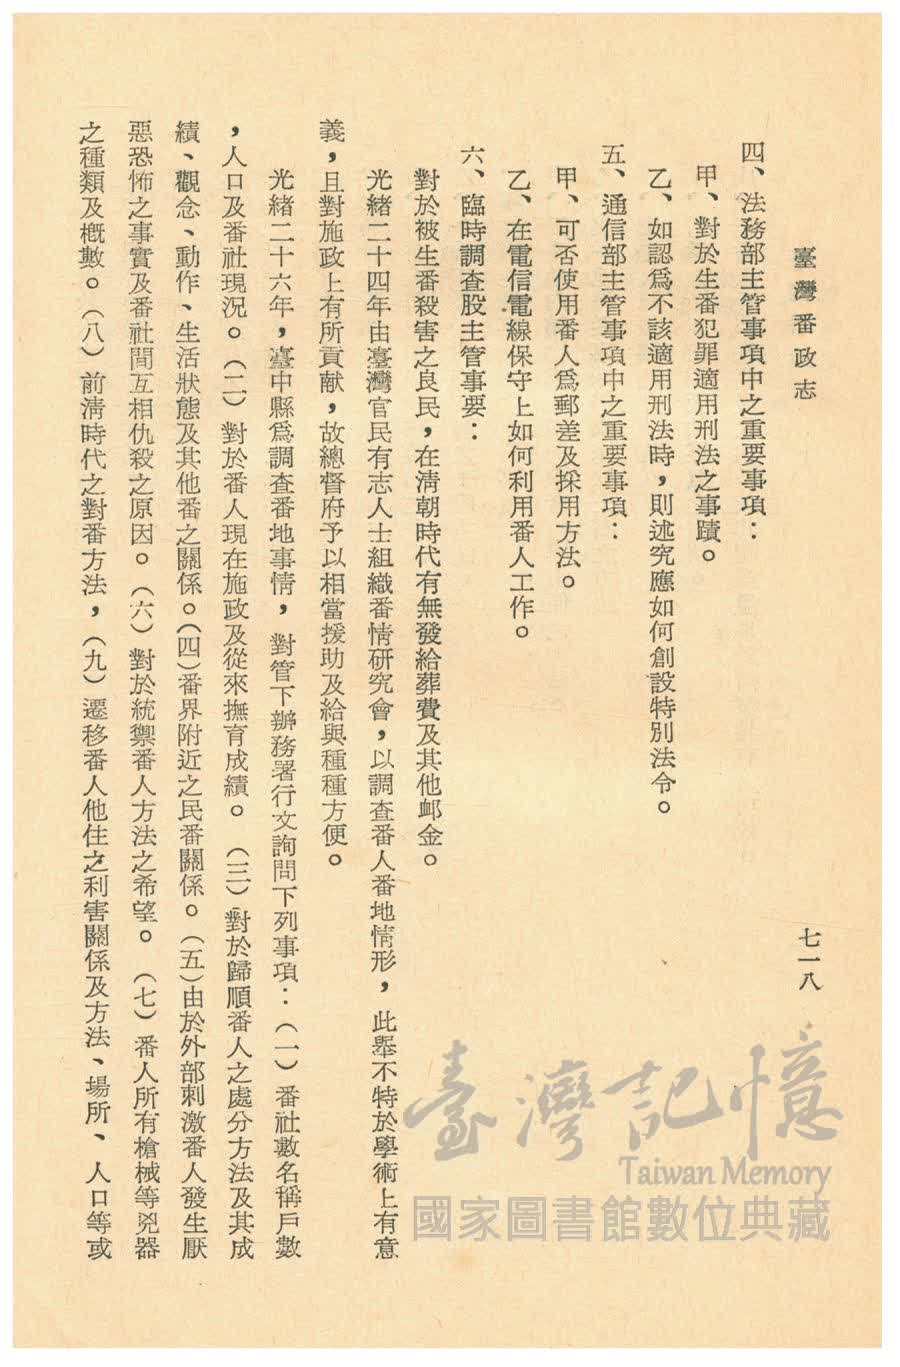 臺灣番政志
七一八
四、法務部主管事項中之重要事項：
甲、對於生番犯罪適用刑法之事蹟。
乙、如認爲不該適用刑法時，則述究應如何創設特別法令。
五、通信部主管事項中之重要事項：
甲、可否使用番人爲郵差及採用方法。
乙、在電信電線保守上如何利用番人工作。
六、臨時調查股主管事要：
對於被生番殺害之良民，在淸朝時代有無發給葬費及其他卹金。
光緒二十四年由臺灣官民有志人士組織番情硏究會，以調查番人番地情形，此擧不特於學術上有意
義，且對施政上有所貢献，故總督府予以相當援助及給與種種方便。
光緒二十六年，臺中縣爲調查番地事情，對管下辦務署行文詢問下列事項：（一）番社數名稱戶數
，人口及番社現況。（二）對於番人現在施政及從來撫育成績。（三）對於歸順番人之處分方法及其成
績、觀念、動作、生活狀態及其他番之關係。（四）番界附近之民番關係。（五）由於外部刺激番人發生厭
惡恐怖之事實及番社間互相仇殺之原因。（六）對於統禦番人方法之希望。（七）番人所有槍械等兇器
之種類及槪數。（八）前淸時代之對番方法，（九）遷移番人他住之利害關係及方法、場所、人口等或
臺灣記憶
Taiwan Memory
國家圖書館數位典藏